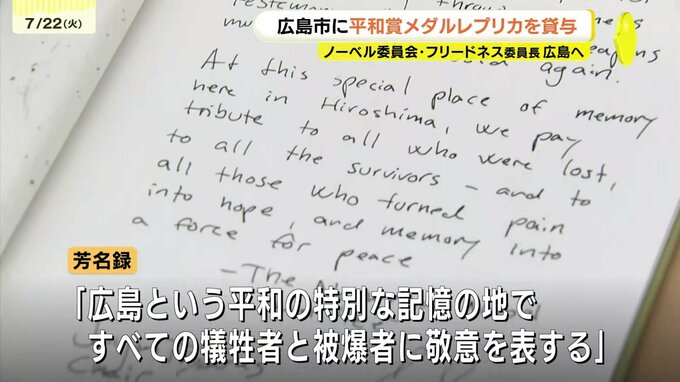 7/22(火)
広島市に平和賞メダルレプリカを貸与
ノーベル委員会・フリードネス委員長 広島へ
again.
At this special place of memory
here in Hiroshima, we pay
tribute to all who were lost,
to all the survivors – and to
all those who turned pain
into hope, and memory into
a force for peace
- The
芳名録
「広島という平和の特別な記憶の地で
すべての犠牲者と被爆者に敬意を表する」